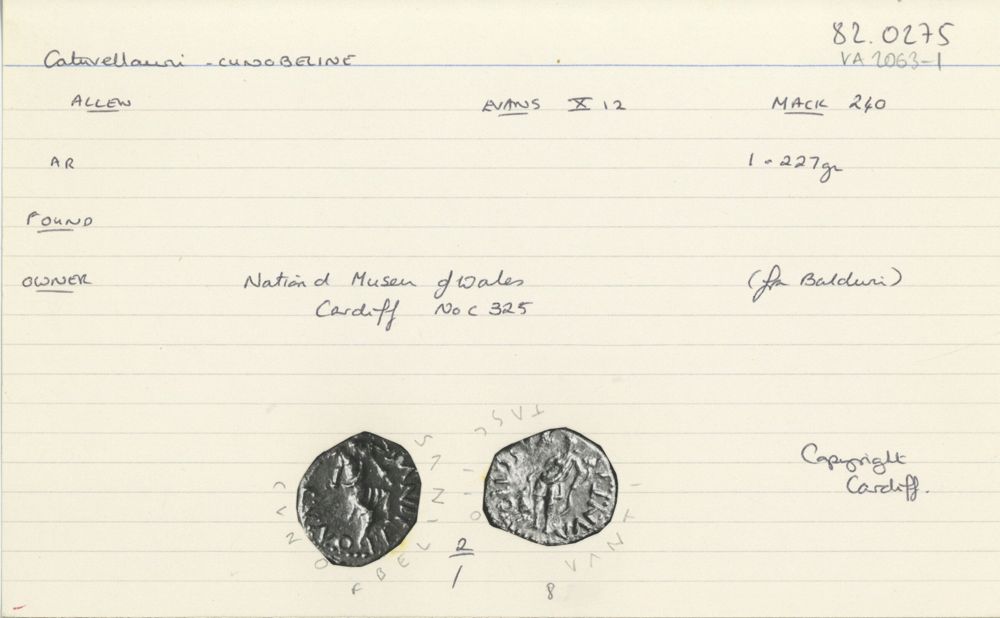 82.0275
Catuvellauni - CUNOBELINE
VA 2063-1
ALLEN EVANS X 12 MACK 240
AR 1.227gr
FOUND
OWNER National Museum of Wales (fr Baldwin)
Cardiff No C 325
Copyright
Cardiff.
2
1
8